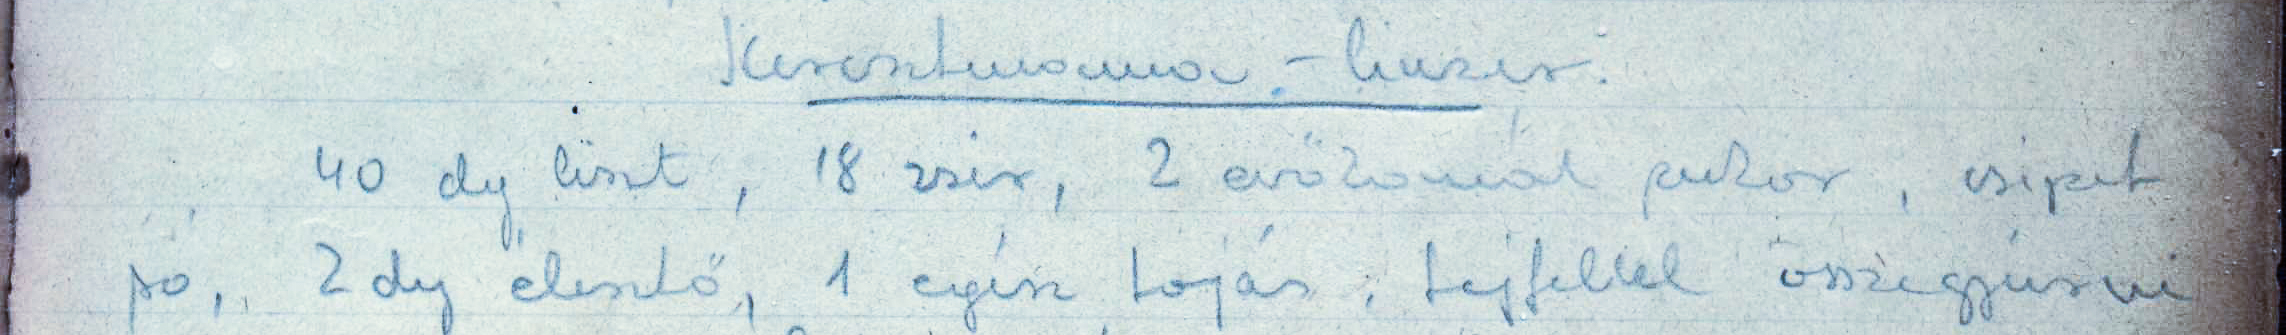 Keresztmama - linzer.
40 dg liszt, 18 zsir, 2 evőkanál cukor, csipet
só, 2 dg élesztő, 1 egész tojás, tejfellel összegyúrni